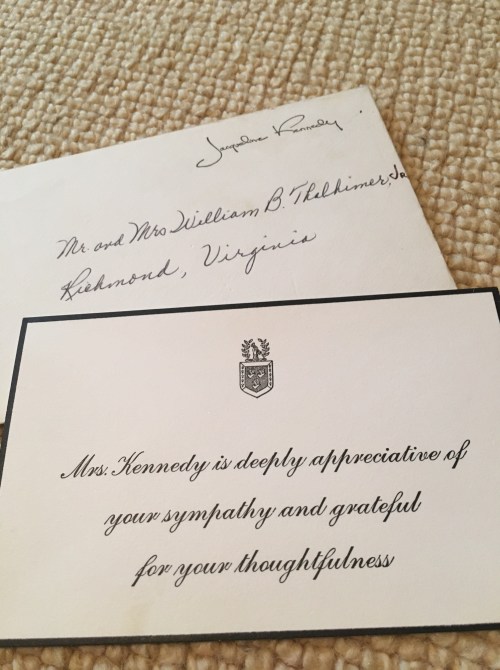 Jacqueline Kennedy
Mr. and Mrs William B. Thalhimer, Jr
Richmond, Virginia
Mrs. Kennedy is deeply appreciative of
your sympathy and grateful
for your thoughtfulness